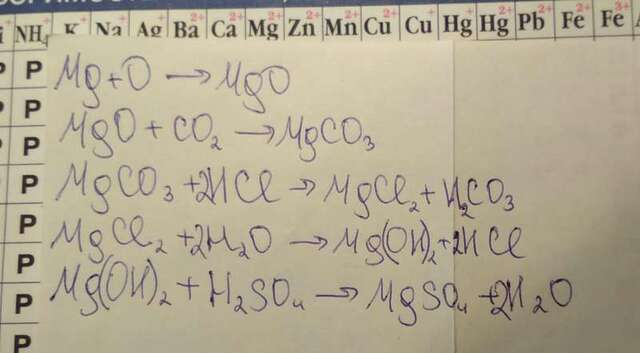 NH₄ K⁺ Na⁺ Ag⁺ Ba²⁺ Ca²⁺ Mg²⁺ Zn²⁺ Mn²⁺ Cu²⁺ Cu⁺ Hg⁺ Hg²⁺ Pb²⁺ Fe²⁺ Fe³⁺
P
Mg+O → MgO
P
MgO + CO₂ → MgCO₃
P
P
MgCO₃ + 2HCl → MgCl₂ + H₂CO₃
P
MgCl₂ + 2H₂O → Mg(OH)₂ + 2HCl
P
Mg(OH)₂ + H₂SO₄ → MgSO₄ + 2H₂O
P
P